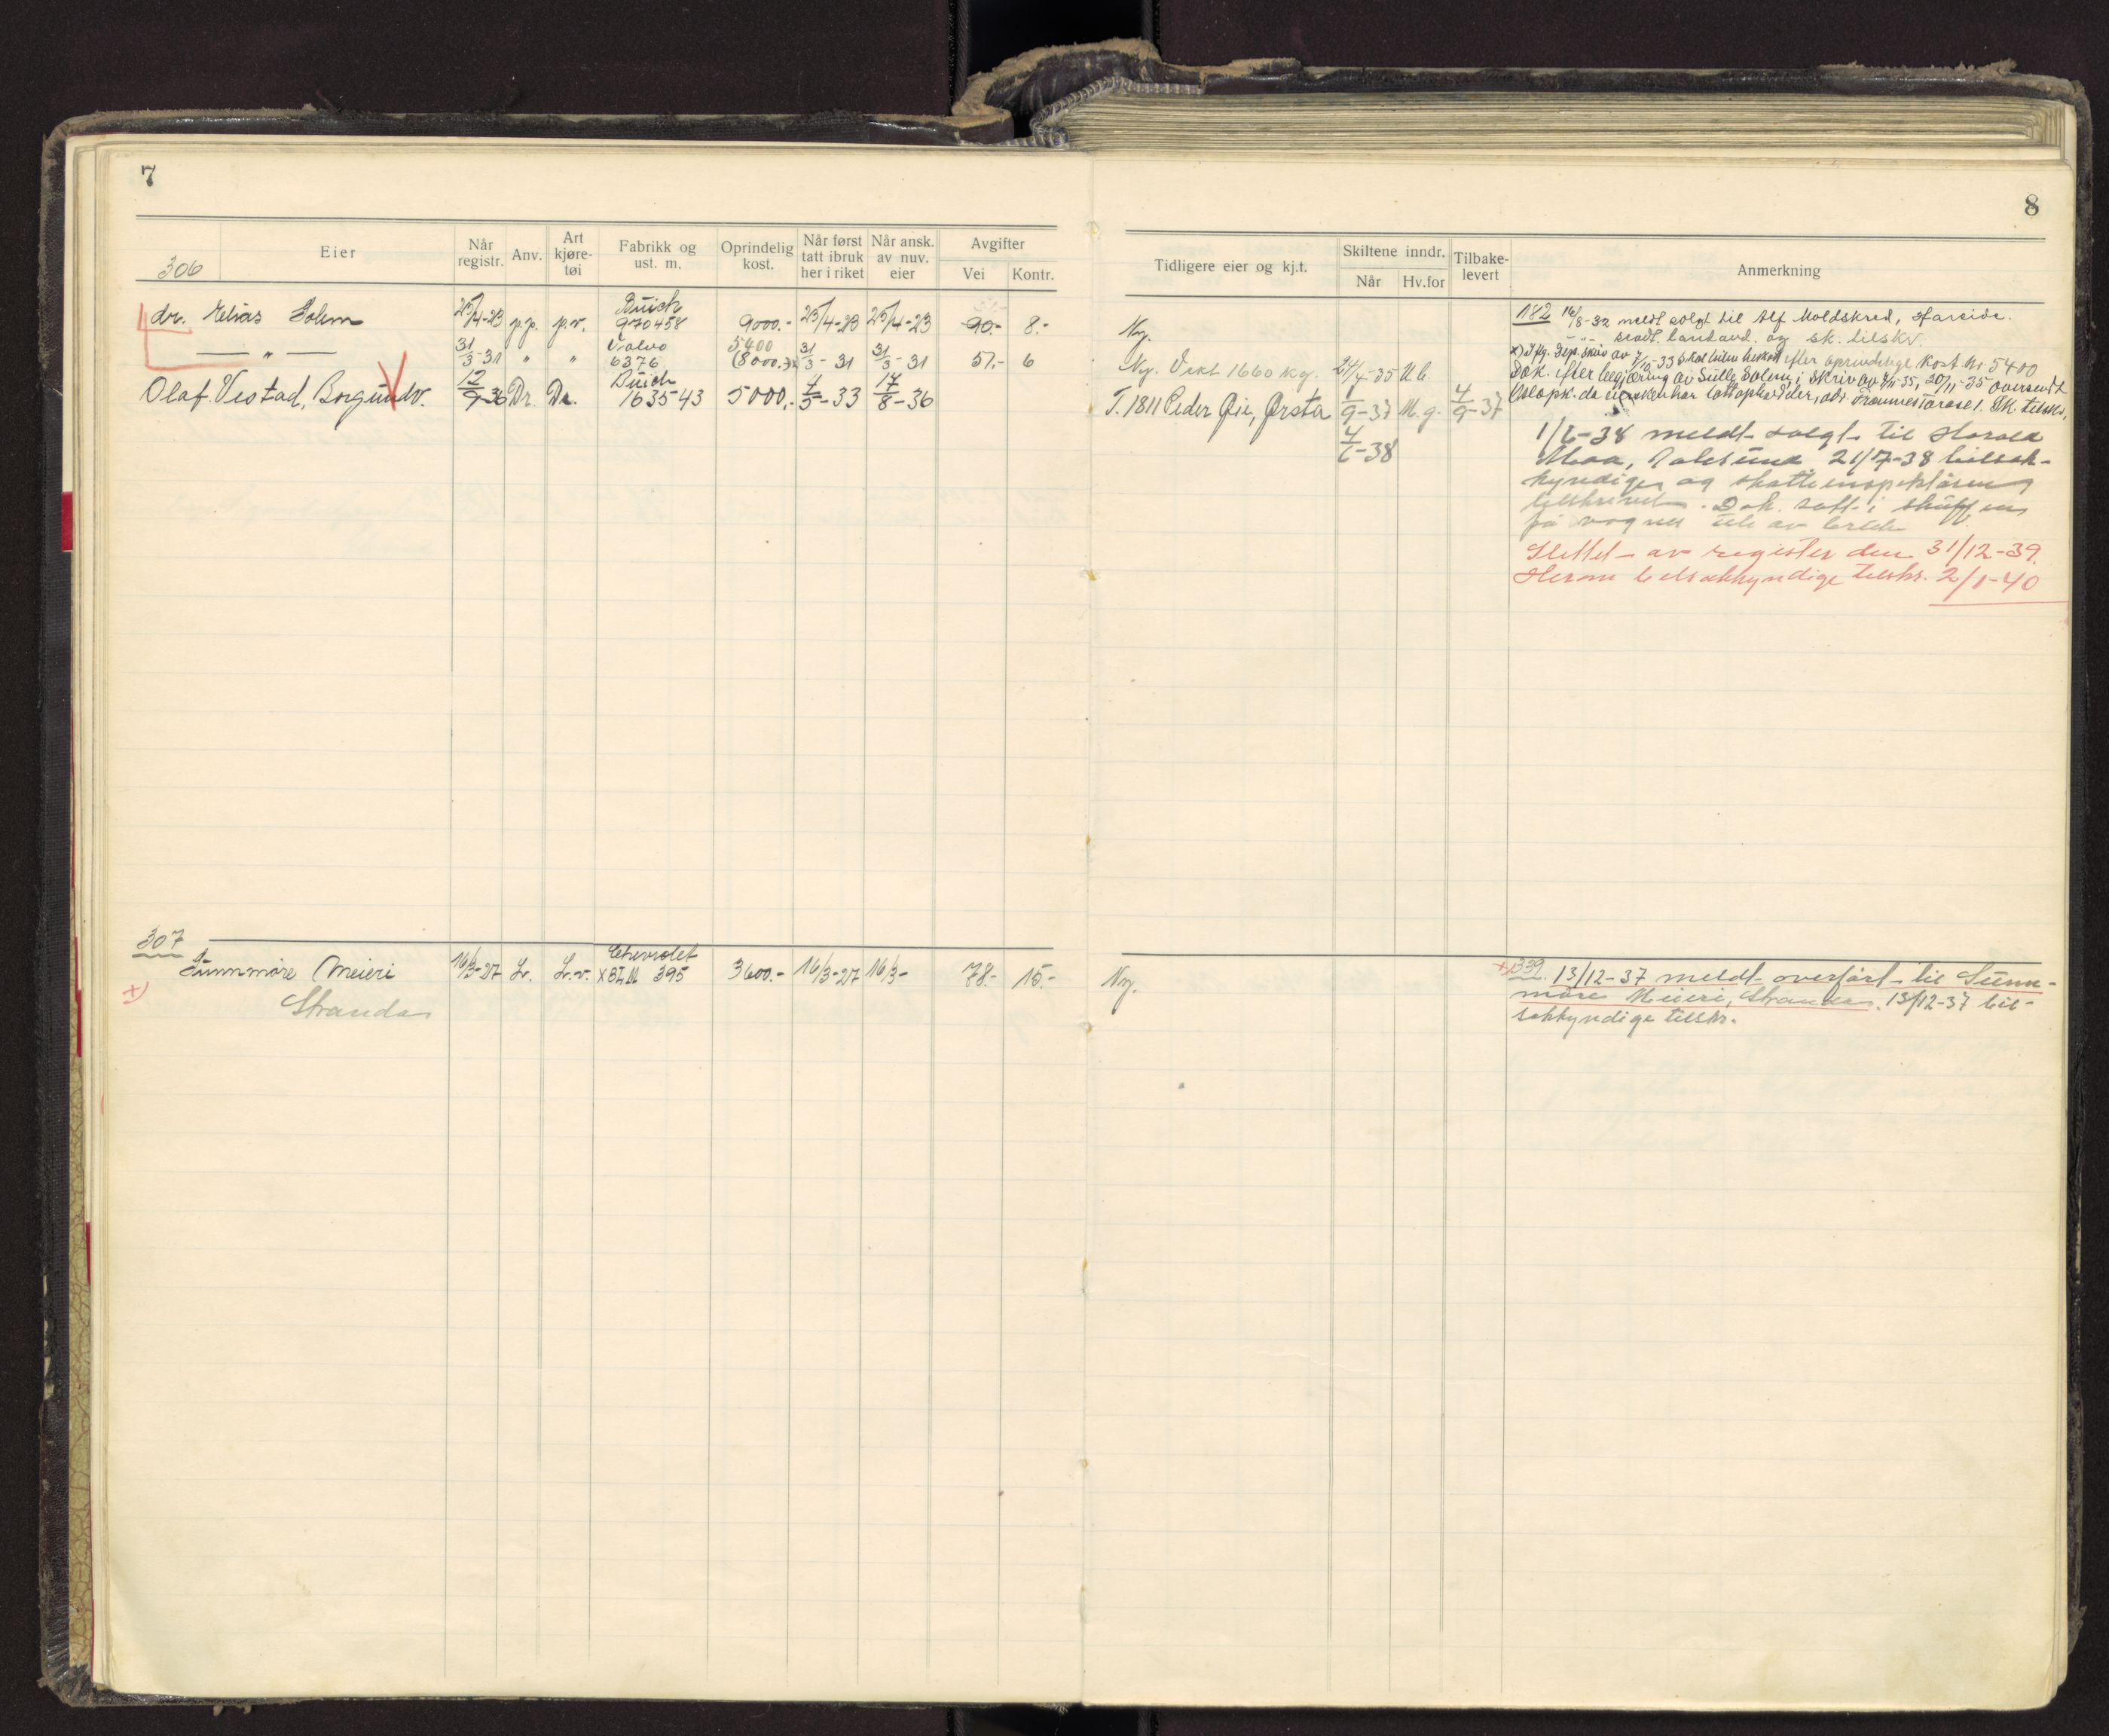 7
306
Eier
Når registr.
Anv.
Art kjøre-tøi
Fabrikk og ust. m.
Oprindelig kost.
Når først tatt ibruk her i riket
Når ansk. av nuv. eier
Avgifter
Vei
Kontr.
dr. Elias Solem 25/4-23 p.p. p.v. Buick 970458 9000.- 25/4-23 25/4-23 90.- 8.-
— " — 31/3-31 " " Volvo 6376 5400 (8000.-)x 31/3-31 31/3-31 57.- 6
Olaf Vestad, Borgundv. 12/9-36 Dr. Dr. Buick 1635-43 5000.- 4/5-33 17/8-36
307
Sunnmöre Meieri 16/3-27 L. L.v. Chevrolet 395 3600.- 16/3-27 16/3- 78.- 15.-
x)
Stranda
8
Tidligere eier og kj.t.
Skiltene inndr.
Når
Hv.for
Tilbake-levert
Anmerkning
Ny.
Ny. Vekt 1660 kg. 24/4-35 U.b.
T. 1811 Peder Øie, Ørsta 1/9-37 M.g. 4/9-37
-38
182 16/8-32 meldt solgt til Alf Moldskred, Hareide.
og sk. tilskr.
x) Iflg. Dep. skriv av efter oprindelige kost. kr 5400
Dok. efter begjæring av Solem i skriv av 20/11-35 oversendt
1/6-38 meldt solgt til Harald
Moa, Aalesund 21/7-38 bilsak-
kyndige og skatteinspektören
tilskrevet. Dok. satt i skuffen
på vogner ute av bruk
Slettet av register den 31/12-39.
Herom bilsakkyndige tilskr. 2/1-40
Ny.
x) 339. 13/12-37 meldt overfört til Sunn-
möre Meieri, Stranda. 13/12-37 bil-
sakkyndige tilskr.